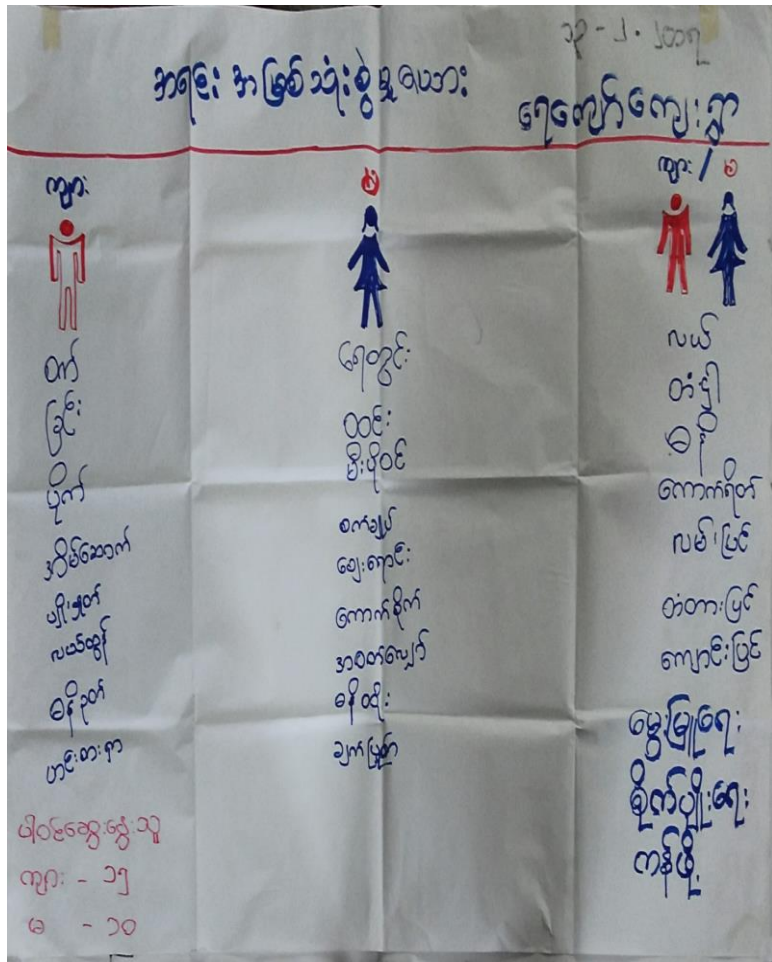 ၁၃-၂-၂၀၁၅
အရင်း အမြစ် သုံးစွဲမှု ဇယား
ရေကျော်ကျေးရွာ
ကျား
မ
ကျား / မ
ဇက်
ခြင်း
ပိုက်
အိမ်ဆောက်
ပျိုးနှုတ်
လယ်ထွန်
ဓနိခုတ်
ဟင်းစားရှာ
ရေတွင်း
ထင်း
မီးဖိုဝင်
စက်ချုပ်
ဈေးရောင်း
ကောက်စိုက်
အဝတ်လျှော်
ဓနိထိုး
ချက်ပြုတ်
လယ်
တံငါ
ဓနိ
ကောက်ရိတ်
လမ်းပြင်
တံတားပြင်
ကျောင်းပြင်
မွေးမြူရေး
စိုက်ပျိုးရေး
ကန်ဖို့
ပါဝင်ဆွေးနွေးသူ
ကျား - ၁၅
မ - ၁၀